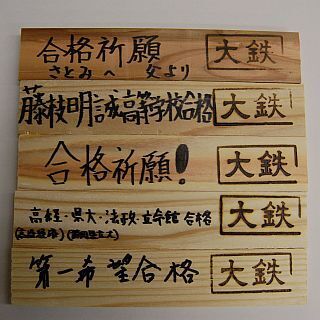 合格祈願
さとみへ 父より
大鉄
藤枝明誠高等学校合格
大鉄
合格祈願!
大鉄
高経・県大・法政・立命館 合格
大鉄
第一希望合格
大鉄